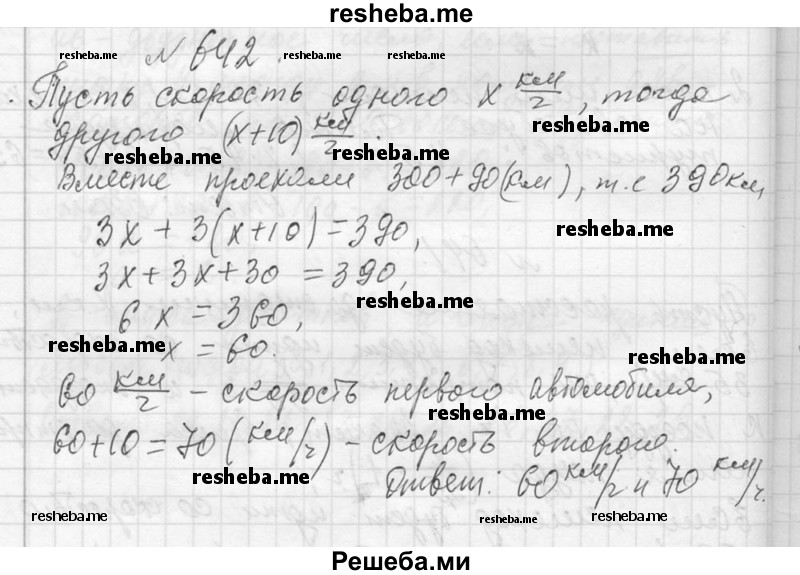 resheba.me
№ 642.
resheba.me resheba.me resheba.me
Пусть скорость одного x км/ч, тогда
resheba.me
другого (x+10) км/ч.
resheba.me
Вместе проехали 300+90(км), т.е 390км
3x + 3(x+10) = 390,
resheba.me
3x+3x+30 = 390,
resheba.me
6x = 360,
resheba.me
x = 60.
resheba.me
60 км/ч - скорость первого автомобиля,
resheba.me
60+10=70 (км/ч) - скорость второго.
resheba.me
Ответ: 60 км/ч и 70 км/ч.
resheba.me resheba.me resheba.me
Решеба.ми